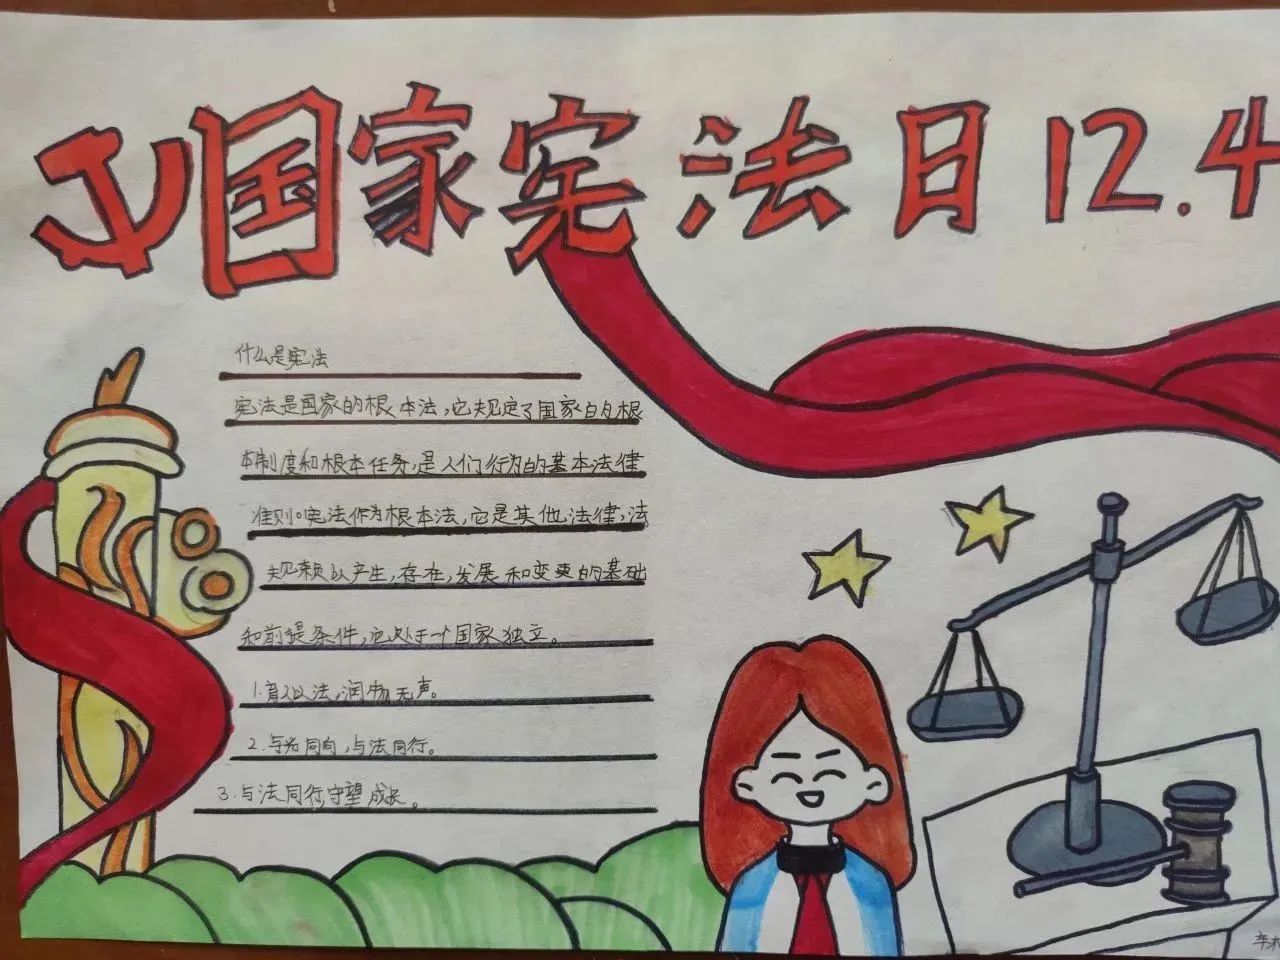 国家宪法日12.4
什么是宪法
宪法是国家的根本法，它规定了国家的根
本制度和根本任务，是人们行为的基本法律
准则。宪法作为根本法，它是其他法律，法
规赖以产生，存在，发展和变更的基础
和前提条件，它处于一个国家独立。
1.育人以法，润物无声。
2.与光同向，与法同行。
3.与法同行，守望成长。